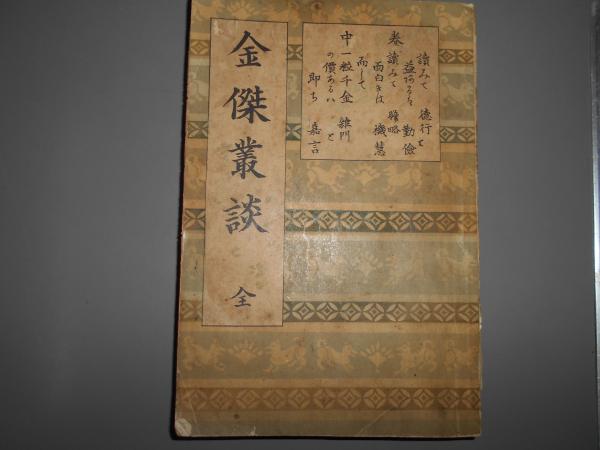 金傑叢談 全
讀みて 德行と
益あるは 勤儉
巻讀みて 雄略
面白きは 機慧
而して
中一粒千金 雜門
の價あるハ と
即ち 嘉言